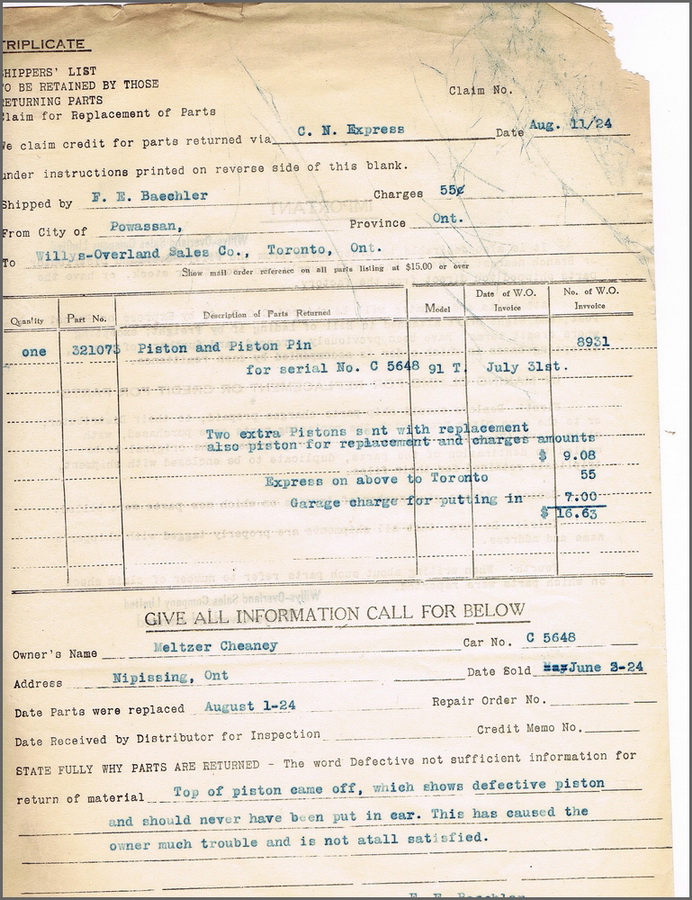 TRIPLICATE
SHIPPERS' LIST
TO BE RETAINED BY THOSE
RETURNING PARTS
Claim for Replacement of Parts
Claim No.
We claim credit for parts returned via C. N. Express Date Aug. 11/24
under instructions printed on reverse side of this blank.
Shipped by F. E. Baechler Charges 55¢
From City of Powassan, Province Ont.
To Willys-Overland Sales Co., Toronto, Ont.
Show mail order reference on all parts listing at $15.00 or over
Quantity Part No. Description of Parts Returned Model Date of W.O. Invoice No. of W.O. Invvoice
one 321073 Piston and Piston Pin 8931
for serial No. C 5648 91 T. July 31st.
Two extra Pistons sent with replacement
also piston for replacement and charges amounts
$ 9.08
Express on above to Toronto 55
Garage charge for putting in 7.00
$ 16.63
GIVE ALL INFORMATION CALL FOR BELOW
Owner's Name Meltzer Cheaney Car No. C 5648
Address Nipissing, Ont Date Sold June 3-24
Date Parts were replaced August 1-24 Repair Order No.
Date Received by Distributor for Inspection Credit Memo No.
STATE FULLY WHY PARTS ARE RETURNED - The word Defective not sufficient information for
return of material Top of piston came off, which shows defective piston
and should never have been put in car. This has caused the
owner much trouble and is not atall satisfied.
F. E. Baechler